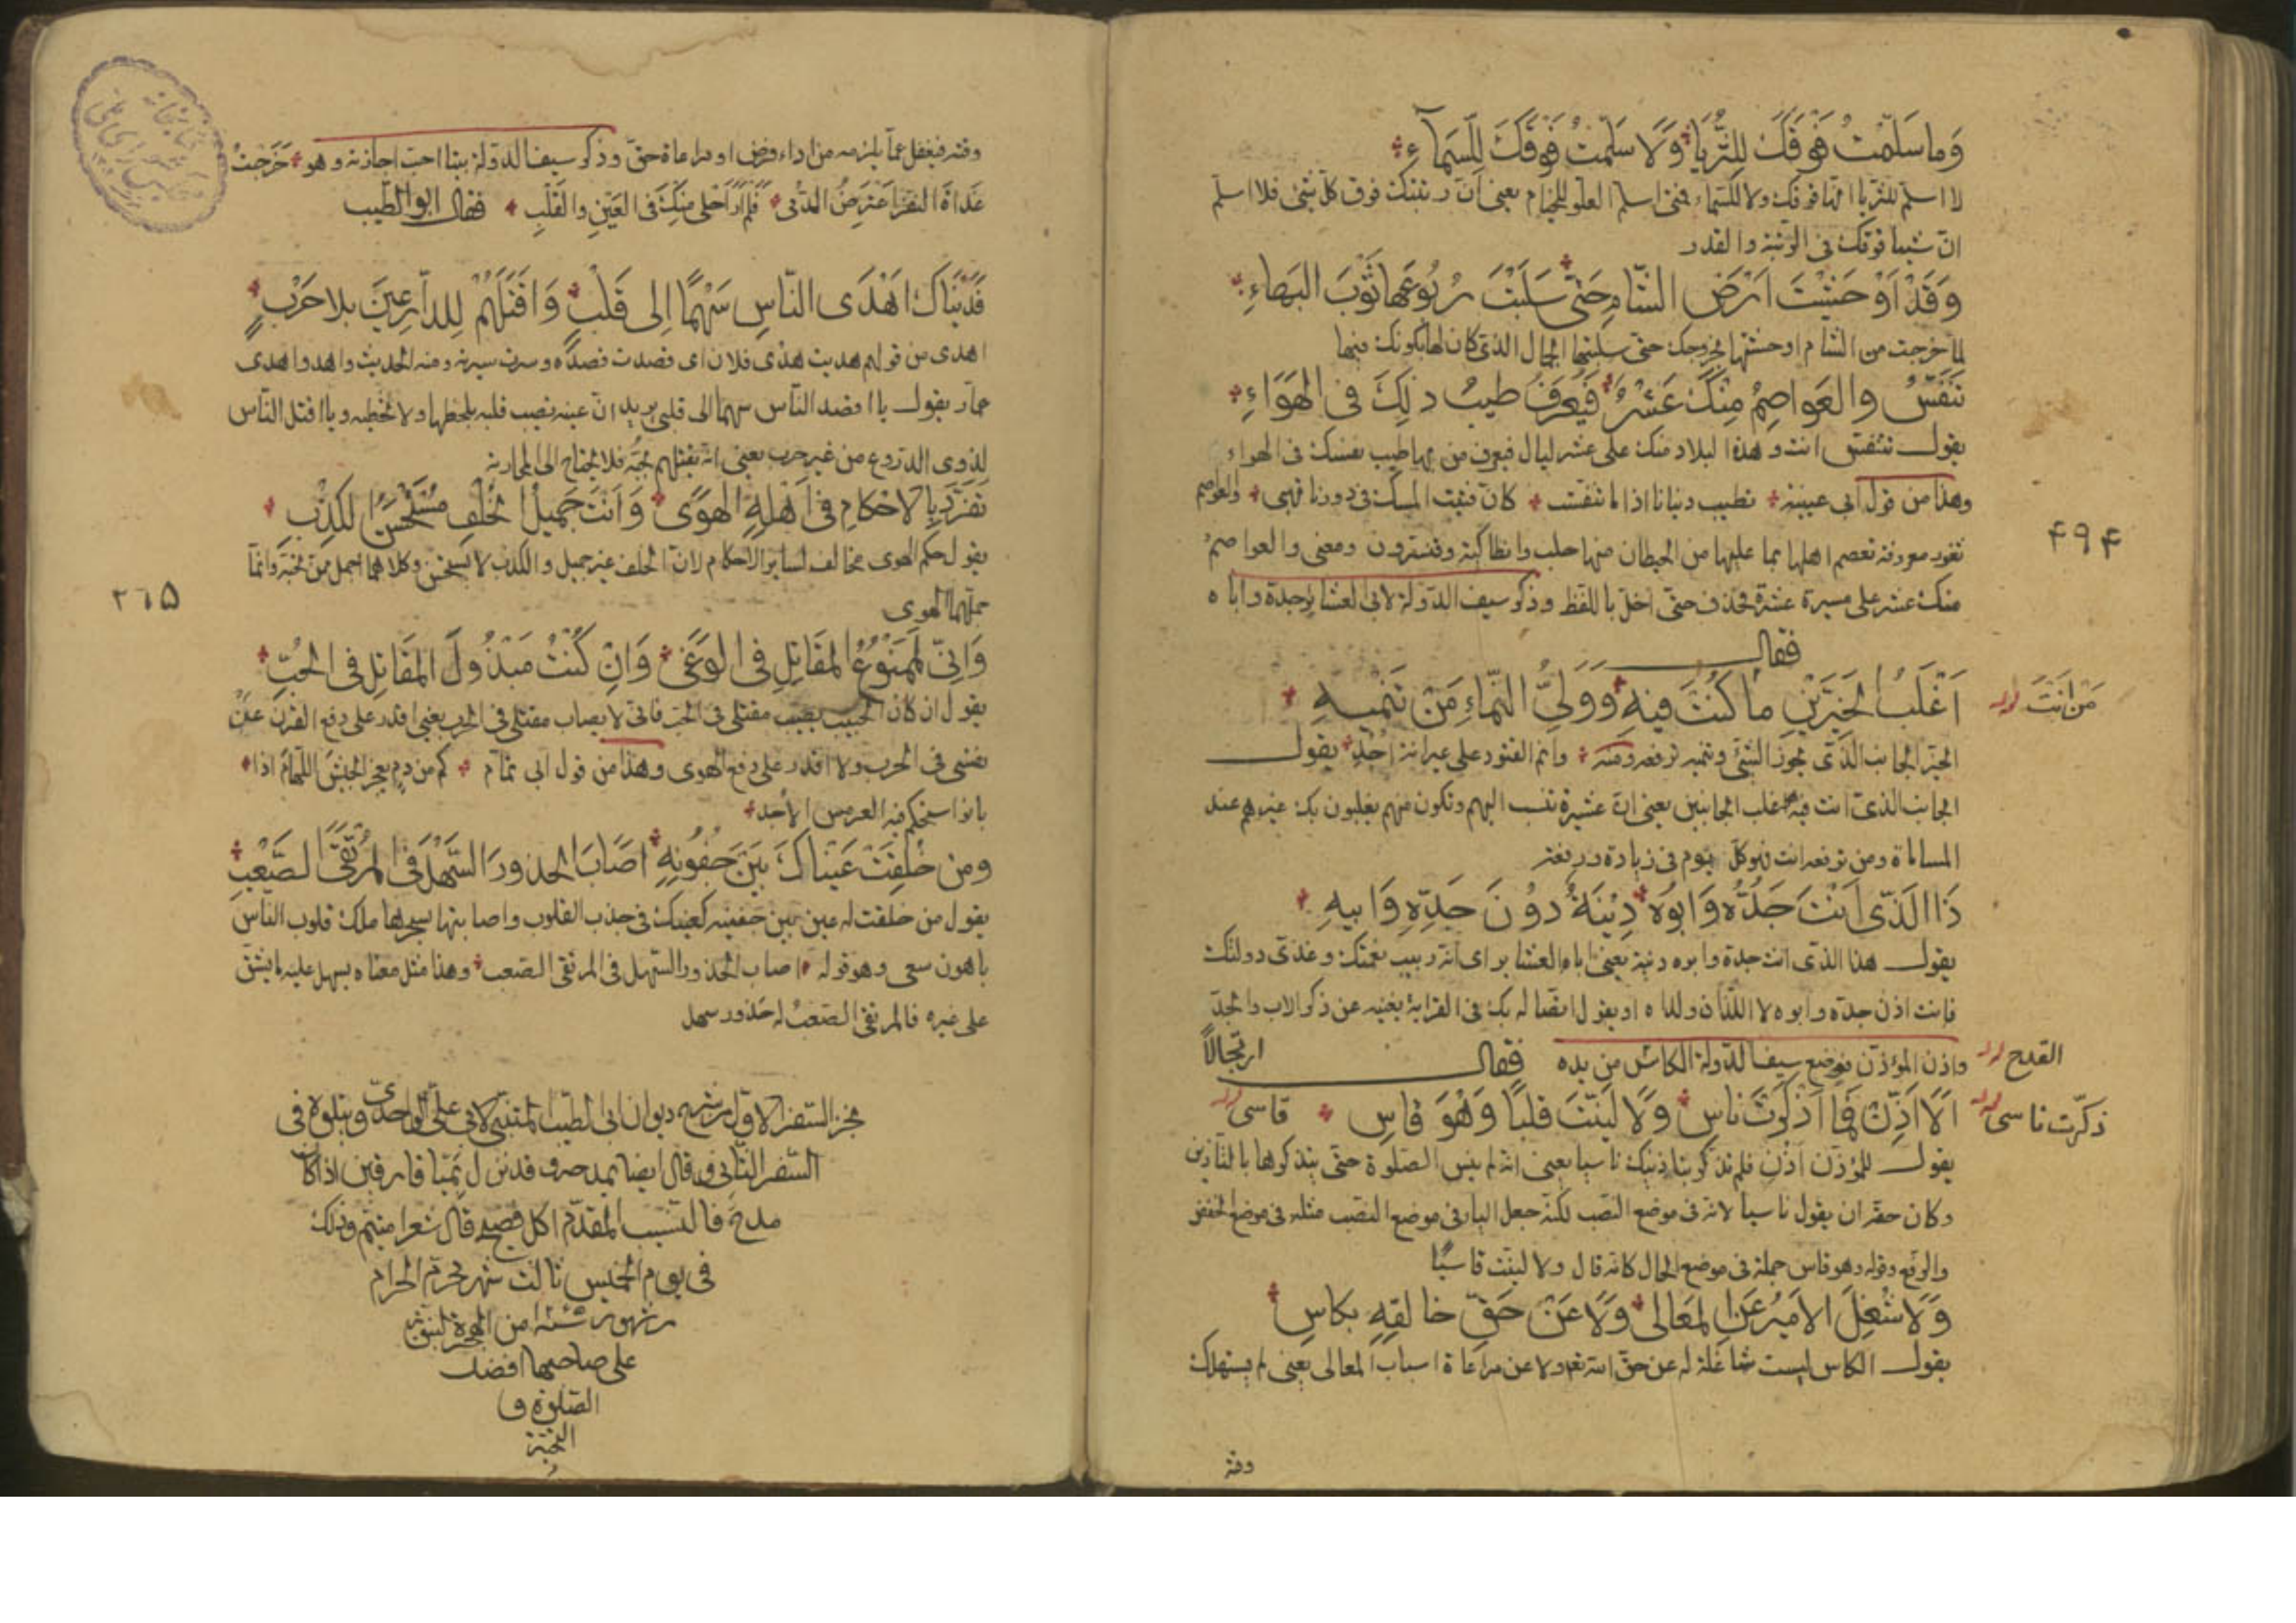 وَما سَلَّمْتُ فَوْقَكَ لِلثُّرَيَّا وَلَا سَلَّمْتُ فَوْقَكَ لِلسَّمَآءِ
لا اسلم للثريا انها فوقك ولا للسماء فمتى اسلم العلو للخيام يعنى ان رتبتك فوق كل شئ فلا اسلم
ان شيا فوقك فى الرتبة والقدر
وَقَدْ اَوْحَشْتَ اَرْضَ الشَّامِ حَتَّى سَلَبْتَ رُبُوعَهَا ثَوْبَ البَهَاءِ
لما خرجت من الشام اوحشتها بخروجك حتى سلبتها الجمال الذى كان لها بكونك فيها
تَنَفَّسُ وَالعَوَاصِمُ مِنْكَ عَشْرٌ فَيُعْرَفُ طِيبُ ذَلِكَ فى الهَوَاءِ
يقول تتنفس انت وهذه البلاد منك على عشر ليال فيعرف من بها طيب نفسك فى الهواء
وهذا من قول ابى عيينة تطيب دنيانا اذا ما تنفست كان فتيت المسك فى دورنا نهبى والعواصم
ثغور معروفة تعصم اهلها بما عليها من الحيطان منها حلب وانطاكية وقنسرون ومعنى والعواصم
منك عشر على مسيرة عشرة فحذف حتى اخل باللفظ وذكر سيف الدولة لابى العشاير جدة واباه
فقال
اَغْلَبُ الحَيِّزَيْنِ مَا كُنْتَ فِيهِ وَوَلِيُّ النَّمَاءِ مَنْ تَنْمِيهِ
مَن اَنْتَ
الحيز الجانب الذى يحوز الشئ وتنميه ترفعه ومنه وانم القتود على عيرانة اجد يقول
الجانب الذى انت فيه اغلب الجانبين يعنى ان عشيرة تنسب اليهم وتكون منهم يغلبون بك غيرهم عند
المساماة ومن ترفعه انت فهو كل يوم فى زيادة ورفعة
ذَا الَّذِى اَنْتَ جَدُّهُ وَاَبُوهُ دِنْيَةً دُوْنَ جَدِّهِ وَاَبِيهِ
يقول هذا الذى انت جدة وابوه دنية يعنى ابا العشاير اى انه ربيب نعمتك وغذى دولتك
فانت اذن جده وابوه لا اللذان ولداه او يقول اتصاله بك فى القرابة يغنيه عن ذكر الاب والجد
واذن المؤذن فوضع سيف الدولة الكاس من يده فقال ارتجالاً
القدح
اَلَا اَذِّنْ فَمَا اَذْكَرْتَ نَاسِ وَلَا لَيَّنْتَ قَلْبًا وَهْوَ قَاسِ قاسى
ذكّرت ناسى
يقول للمؤذن اذن فلم تذكر بتاذينك ناسيا يعنى انه لم ينس الصلوة حتى يتذكرها بالتاذين
وكان حقه ان يقول ناسيا لانه فى موضع النصب لكنه جعل الياء فى موضع النصب مثله فى موضع الخفض
والرفع وقوله وهو قاس جملة فى موضع الحال كانه قال ولا لينت قاسيًا
وَلَا شُغِلَ الاَمِيرُ عَنِ المَعَالى وَلَا عَنْ حَقِّ خَالِقِهِ بِكَاسِ
يقول الكاس ليست شاغلة له عن حق الله تعه ولا عن مراعاة اسباب المعالى يعنى لم يستهلك
وقته
۴۹۴
وقته فيغفل عما يلزمه من اداء فرض او مراعاة حق وذكر سيف الدولة بيتا احب اجازته وهو خَرَجْتُ
غَدَاةَ النَّفْرِ اَعْتَرِضُ الدُّمَى فَلَمْ اَرَ اَحْلَى مِنْكَ فى العَيْنِ وَالقَلْبِ فقال ابو الطيب
فَدَيْنَاكَ اَهْدَى النَّاسِ سَهْمًا اِلَى قَلْبٍ وَاَقْتَلَهُمْ لِلدَّارِعِينَ بِلَا حَرْبٍ
اهدى من قولهم هديت هدى فلان اى قصدت قصده وسرت سيرته ومنه الحديث واهدوا هدى
عمار يقول يا اقصد الناس سهما الى قلبى يريد ان عينه تصيب قلبه بلحظها ولا تخطيه ويا اقتل الناس
لذوى الدروع من غير حرب يعنى انه يقتلهم بحبه فلا يحتاج الى المحاربة
تَفَرَّدَ بِالاَحْكَامِ فى اَهْلِهِ الهَوَى وَاَنْتَ جَمِيلُ الخُلْفِ مُسْتَحْسَنُ الكَذِبِ
يقول حكم الهوى مخالف لساير الاحكام لان الخلف غير جميل والكذب لا يستحسن وكلاهما اجمل ممن تحبه وانما
جملهما الهوى
وَاِنِّى لَمَمْنُوعُ المَقَاتِلِ فى الوَغَى وَاِنْ كُنْتُ مَبْذُولَ المَقَاتِلِ فى الحُبِّ
يقول ان كان الحبيب يصيب مقتلى فى الحب فانى لا يصاب مقتلى فى الحرب يعنى اقدر على دفع القرن عن
نفسى فى الحرب ولا اقدر على دفع الهوى وهذا من قول ابى تمام كم من دم يعجز الجيش اللهام اذا
بانوا ستحكم فيه العرمس الاجد
وَمَنْ خُلِقَتْ عَيْنَاكَ بَيْنَ جُفُونِهِ اَصَابَ الحَدُورَ السَّهْلَ فى المُرْتَقَى الصَّعْبِ
يقول من خلقت له عين بين جفنيه كعينك فى جذب القلوب واصابتها بسحرها ملك قلوب الناس
باهون سعى وهو قوله اصاب الحدور السهل فى المرتقى الصعب وهذا مثل معناه يسهل عليه ما يشق
على غيره فالمرتقى الصعب له حدور سهل
نجز السفر الاول من شرح ديوان ابى الطيب المتنبى لابى على الواحدى ويتلوه فى
السفر الثانى وقال ايضا يمدحه وقد نزل ميافارقين اذا كان
مدح فالنسيب المقدم اكل فصيح قال شعرا متيم وذلك
فى يوم الخميس ثالث شهر محرم الحرام
من شهور سنة من الهجرة النبوية
على صاحبها افضل
الصلوة و
التحية
۲٦۵